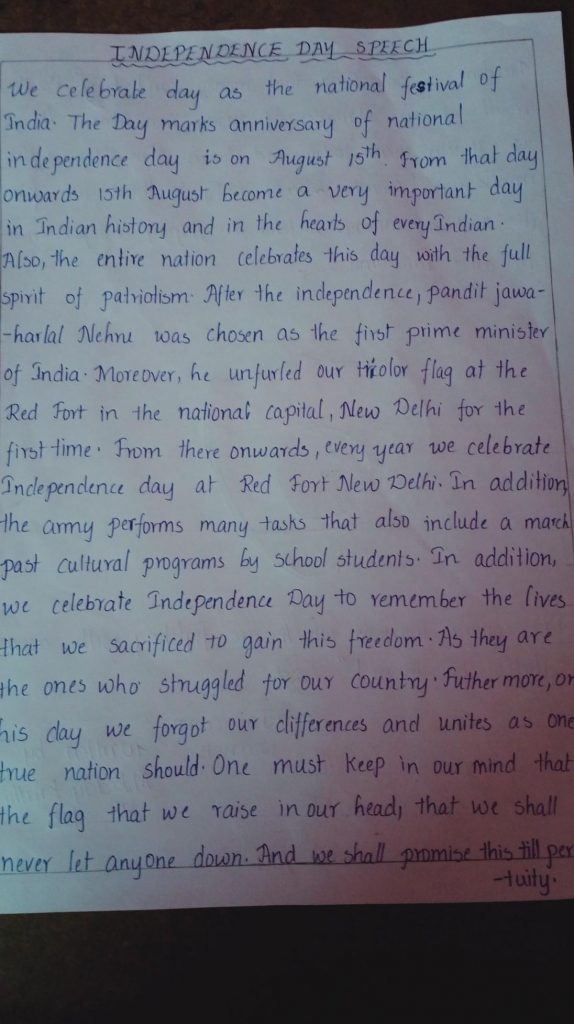 INDEPENDENCE DAY SPEECH
We celebrate day as the national festival of
India. The Day marks anniversary of national
independence day is on August 15th. From that day
onwards 15th August become a very important day
in Indian history and in the hearts of every Indian.
Also, the entire nation celebrates this day with the full
spirit of patriotism. After the independence, pandit jawa-
-harlal Nehru was chosen as the first prime minister
of India. Moreover, he unfurled our tricolor flag at the
Red Fort in the national capital, New Delhi for the
first time. From there onwards, every year we celebrate
Independence day at Red Fort New Delhi. In addition,
the army performs many tasks that also include a march
past cultural programs by school students. In addition,
we celebrate Independence Day to remember the lives
that we sacrificed to gain this freedom. As they are
the ones who struggled for our country. Futher more, on
his day we forgot our differences and unites as one
true nation should. One must keep in our mind that
the flag that we raise in our head, that we shall
never let anyone down. And we shall promise this till per
-tuity.